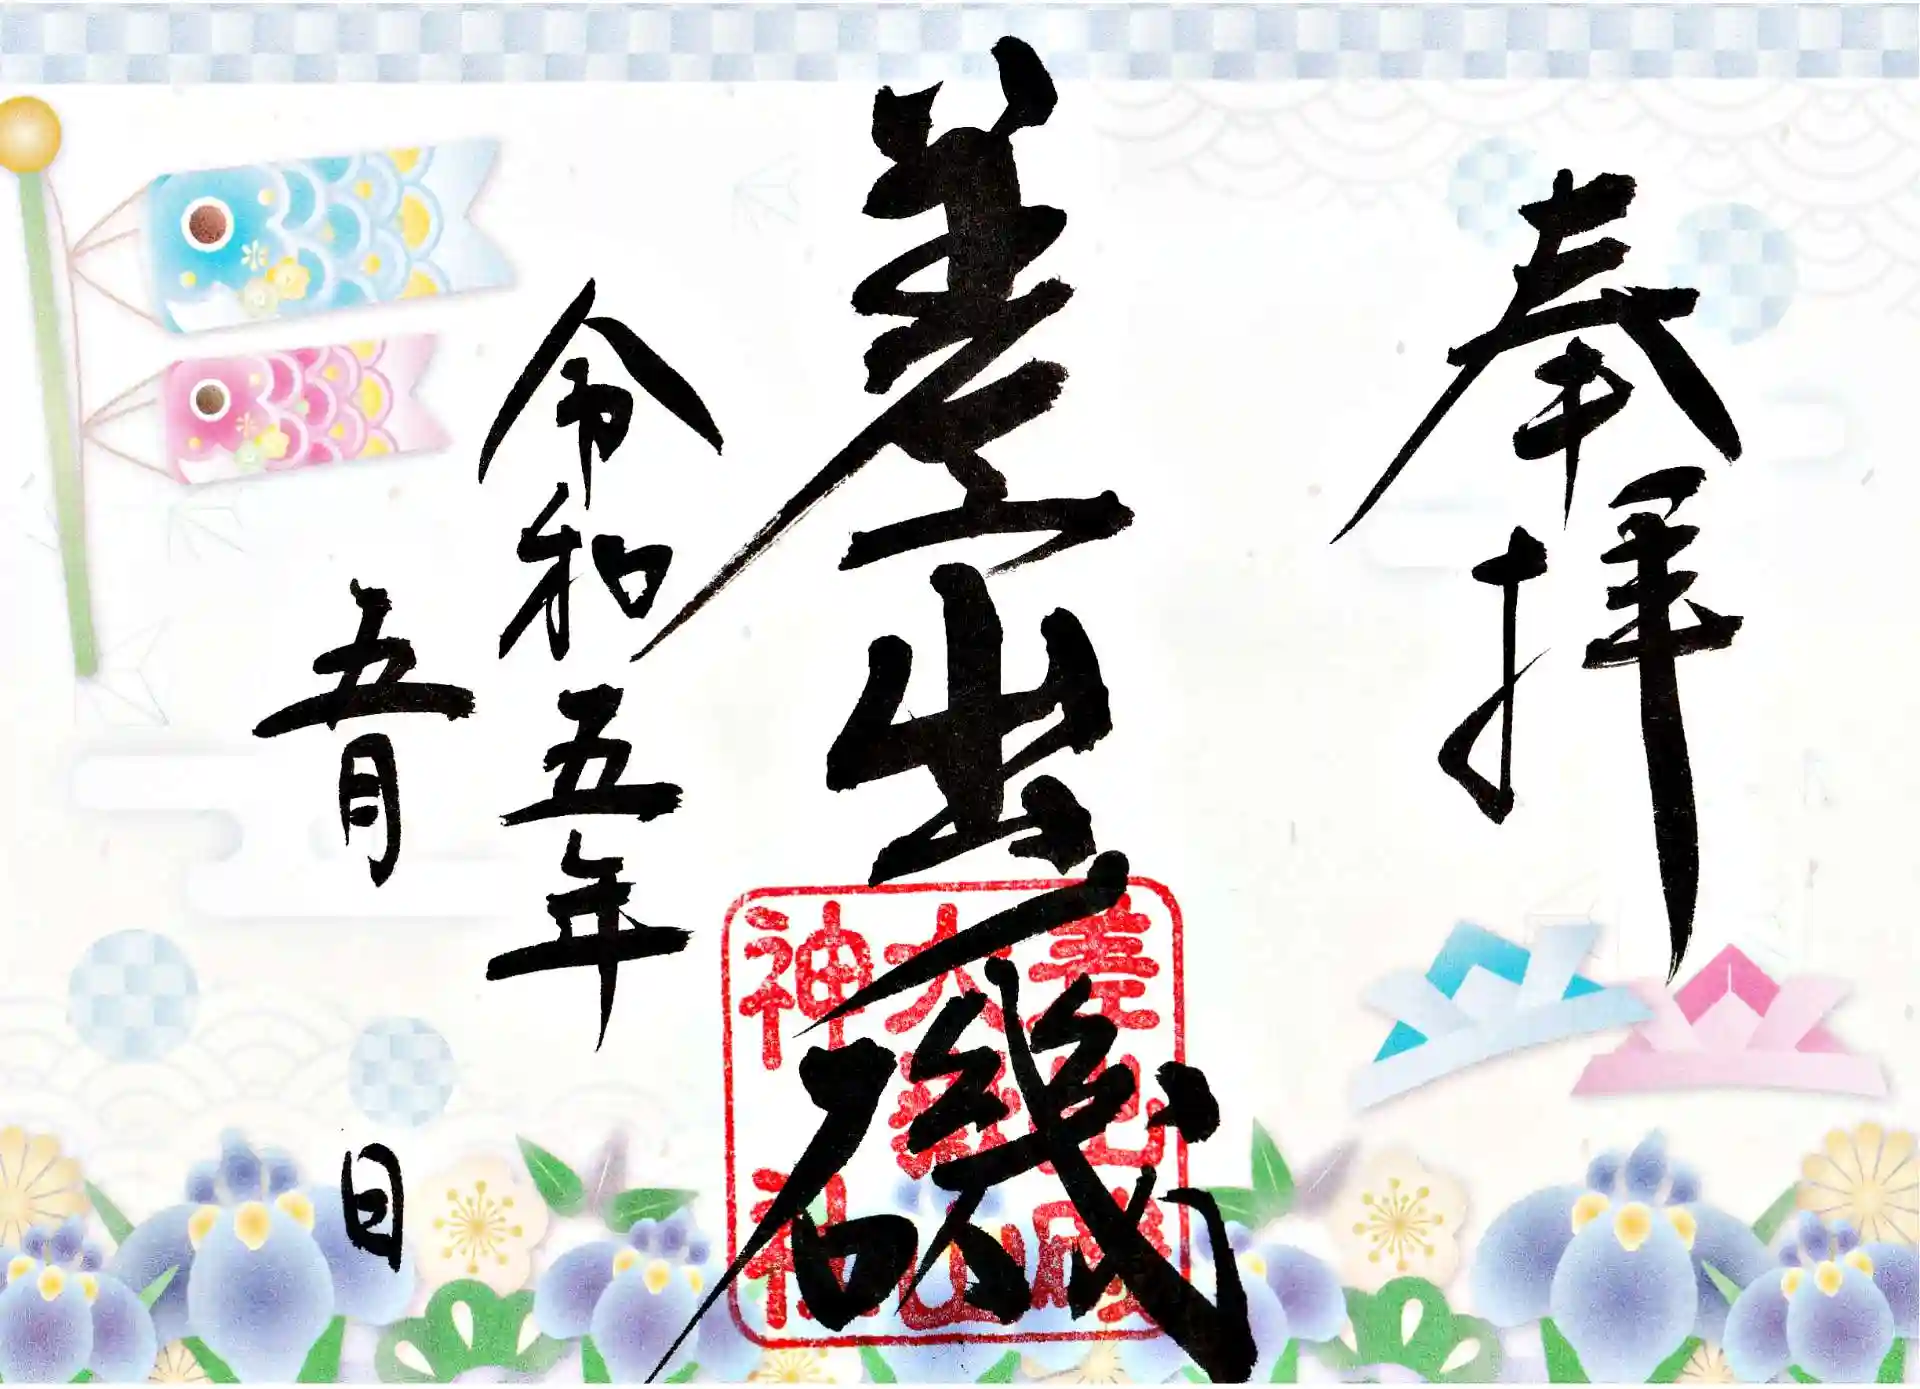 奉拝
差出磯
令和五年
五月 日
差出磯
大嶽山
神社